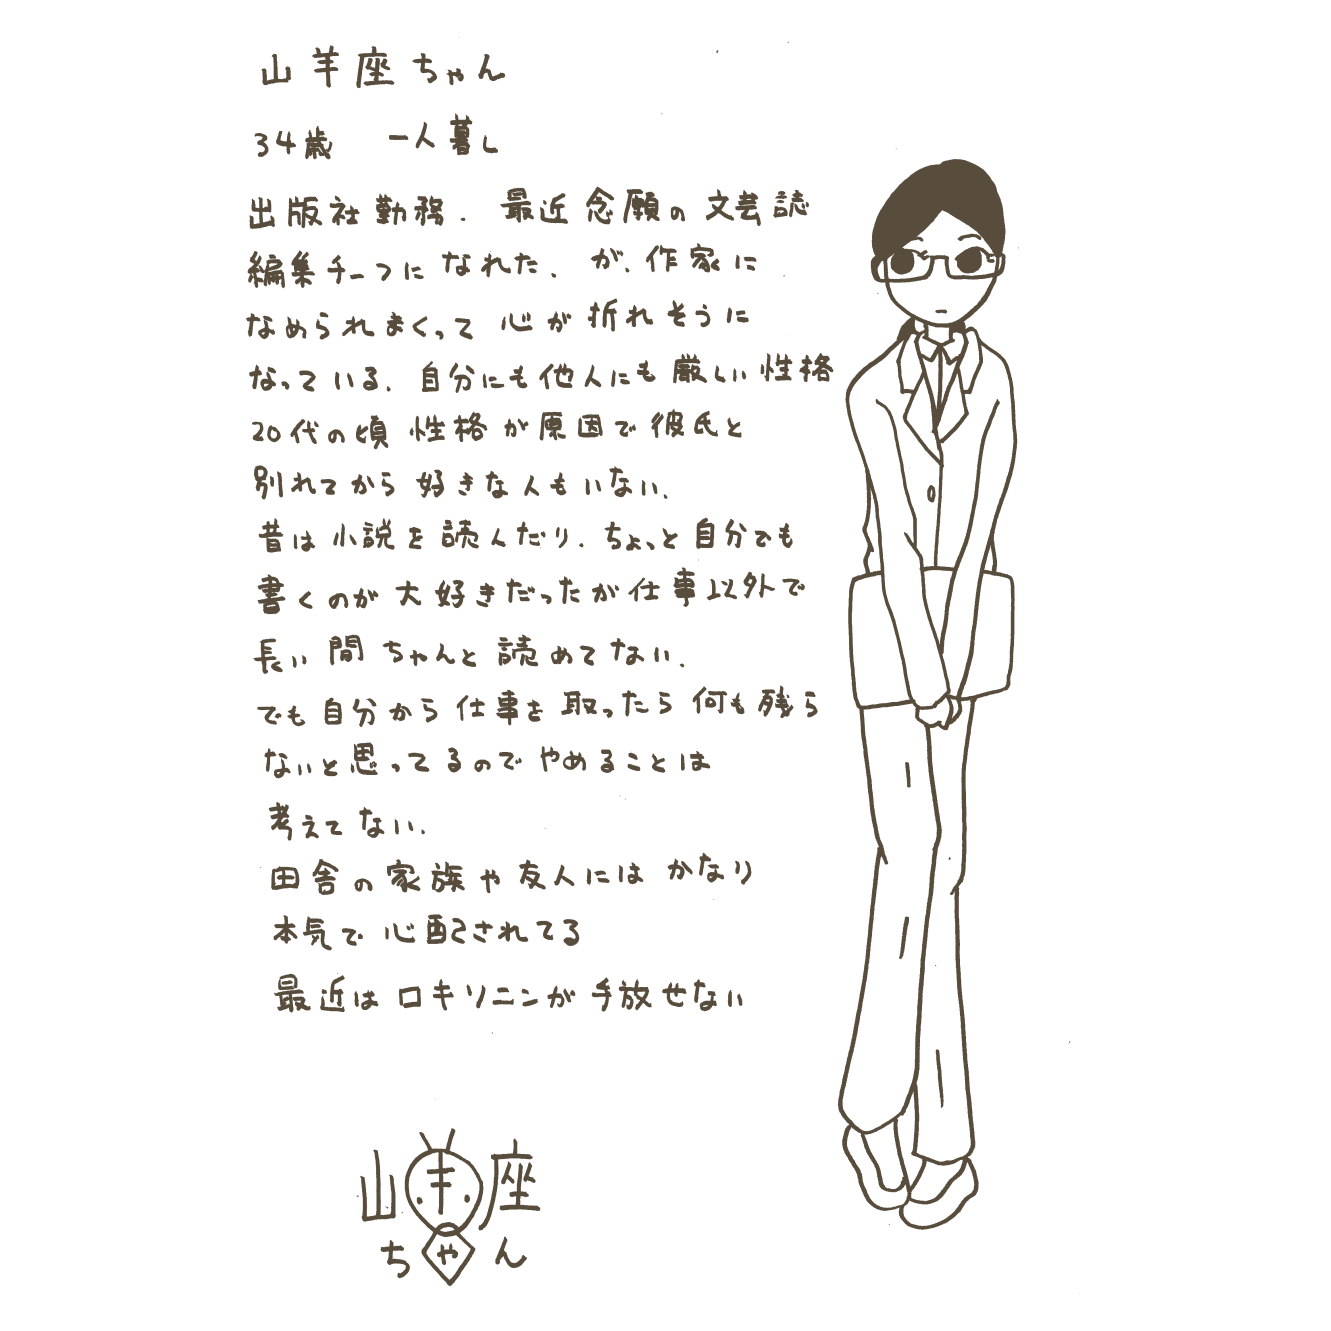 山羊座ちゃん
34歳 一人暮し
出版社勤務. 最近念願の文芸誌
編集チーフになれた. が、作家に
なめられまくって心が折れそうに
なっている. 自分にも他人にも厳しい性格
20代の頃性格が原因で彼氏と
別れてから好きな人もいない.
昔は小説を読んだり. ちょっと自分でも
書くのが大好きだったが仕事以外で
長い間ちゃんと読めてない.
でも自分から仕事を取ったら何も残ら
ないと思ってるのでやめることは
考えてない.
田舎の家族や友人にはかなり
本気で心配されてる
最近はロキソニンが手放せない
山羊座
ちゃん